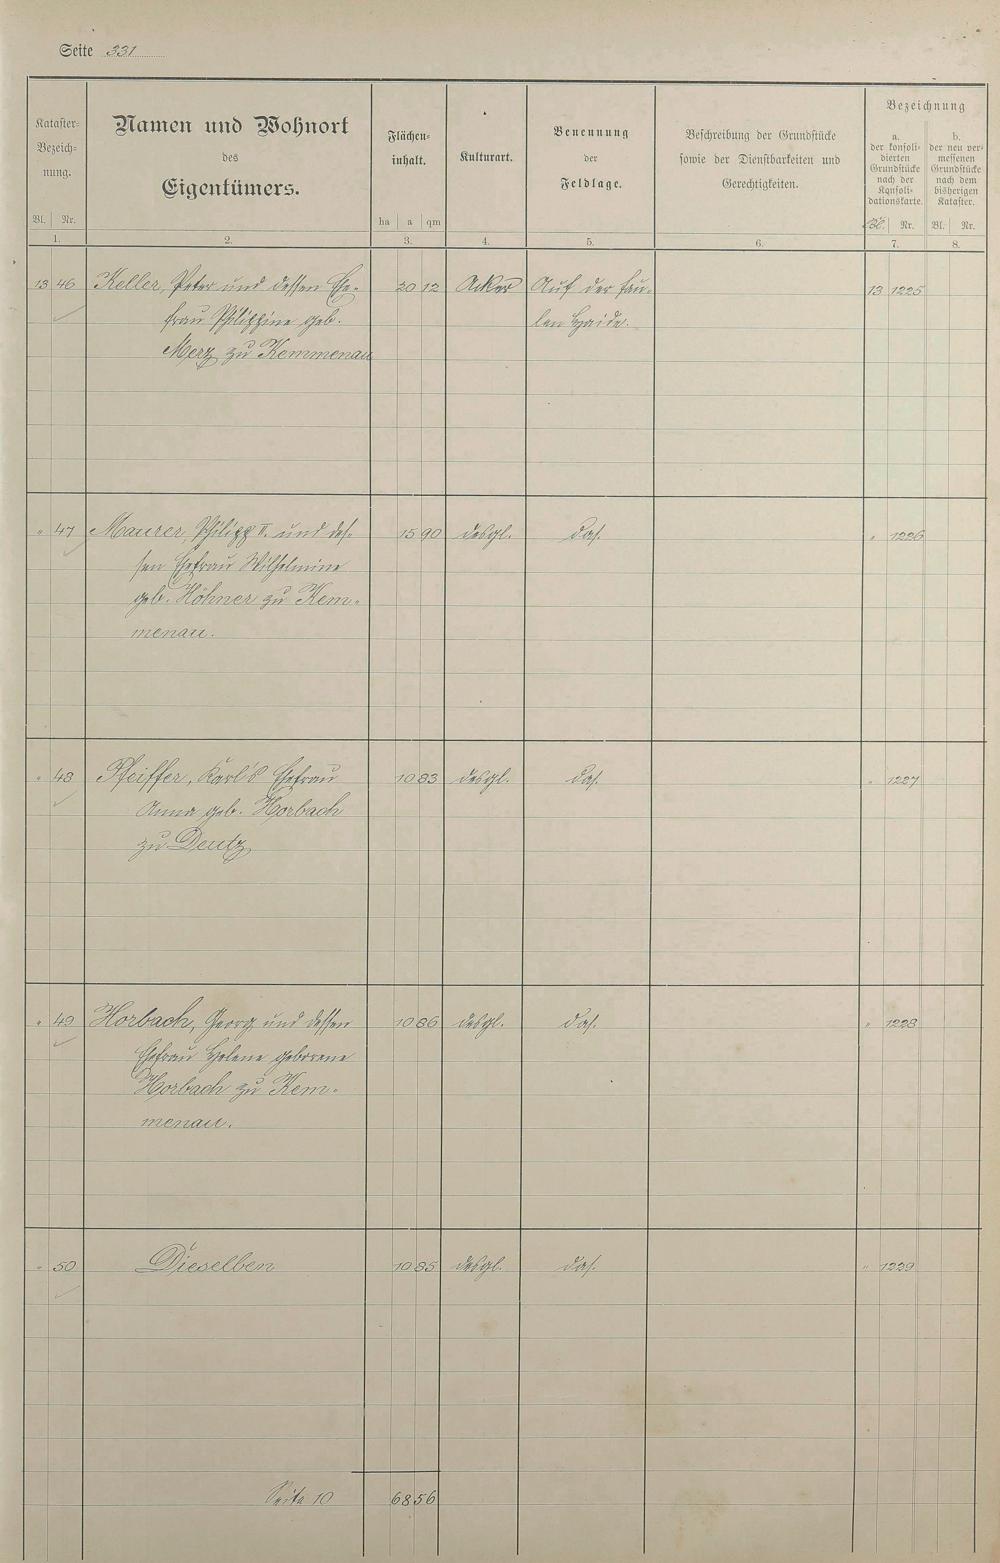 Seite 331
Kataster-
Bezeich-
nung.
Bl. Nr.
Namen und Wohnort
des
Eigentümers.
Flächen-
inhalt.
ha a qm
Kulturart.
Benennung
der
Feldlage.
Beschreibung der Grundstücke
sowie der Dienstbarkeiten und
Gerechtigkeiten.
Bezeichnung
a.
der konsoli-
dierten
Grundstücke
nach der
Konsoli-
dationskarte.
Bl. Nr.
b.
der neu ver-
messenen
Grundstücke
nach dem
bisherigen
Kataster.
Bl. Nr.
1. 2. 3. 4. 5. 6. 7. 8.
13 46 Keller, Peter und dessen Ehe- 20 12 Acker Auf der fau- 13 1225
frau Philippine geb. len Haide.
Merz zu Kemmenau
" 47 Maurer, Philipp II. und des- 15 90 desgl. das. " 1226
sen Ehefrau Wilhelmine
geb. Höhner zu Kem-
menau.
" 48 Pfeiffer, Karl's Ehefrau 10 83 desgl. das. " 1227
Anna geb. Horbach
zu Deutz
" 49 Horbach, Georg und dessen 10 86 desgl. das. " 1228
Ehefrau Helene geborene
Horbach zu Kem-
menau.
" 50 Dieselben 10 85 desgl. das. " 1229
Seite 10 68 56